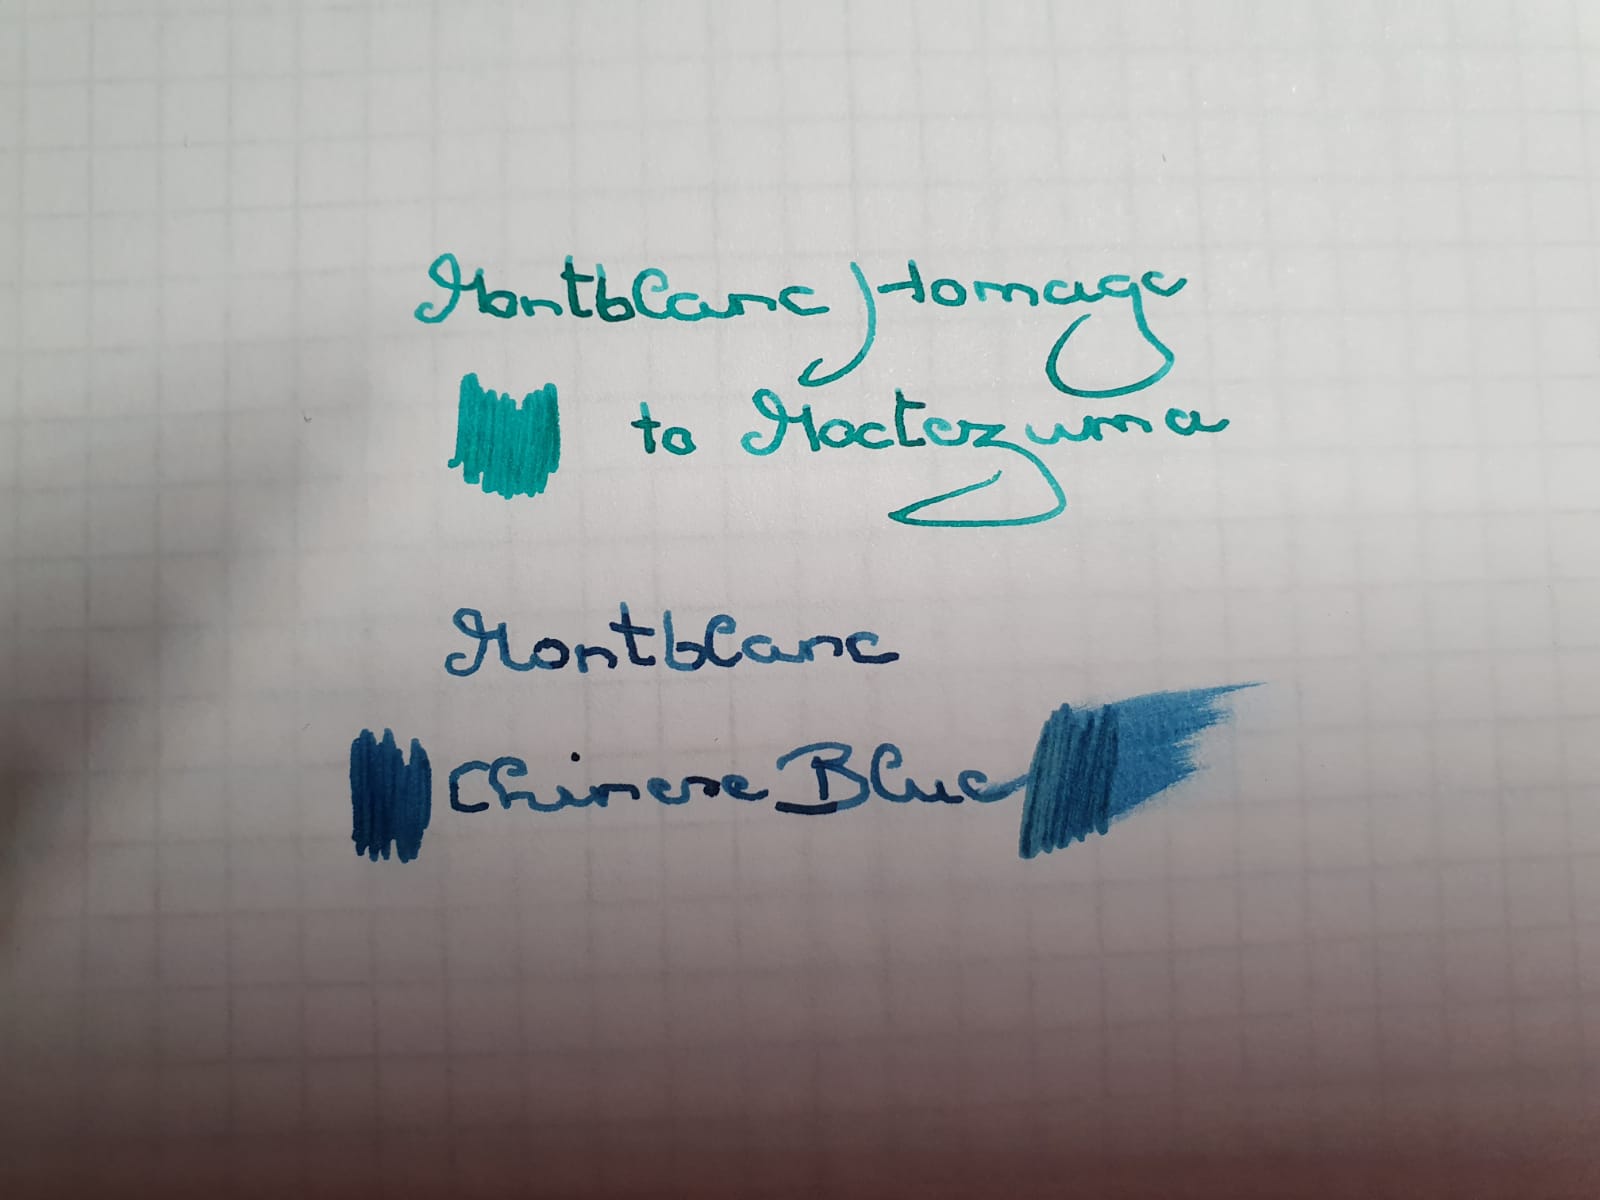 Montblanc Homage
to Moctezuma
Montblanc
Chinese Blue